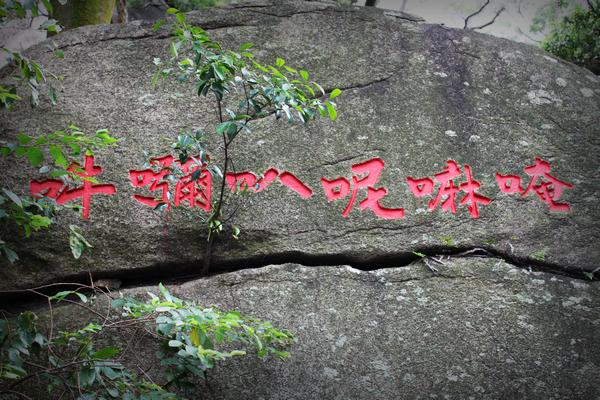 唵嘛呢叭𡁠吽